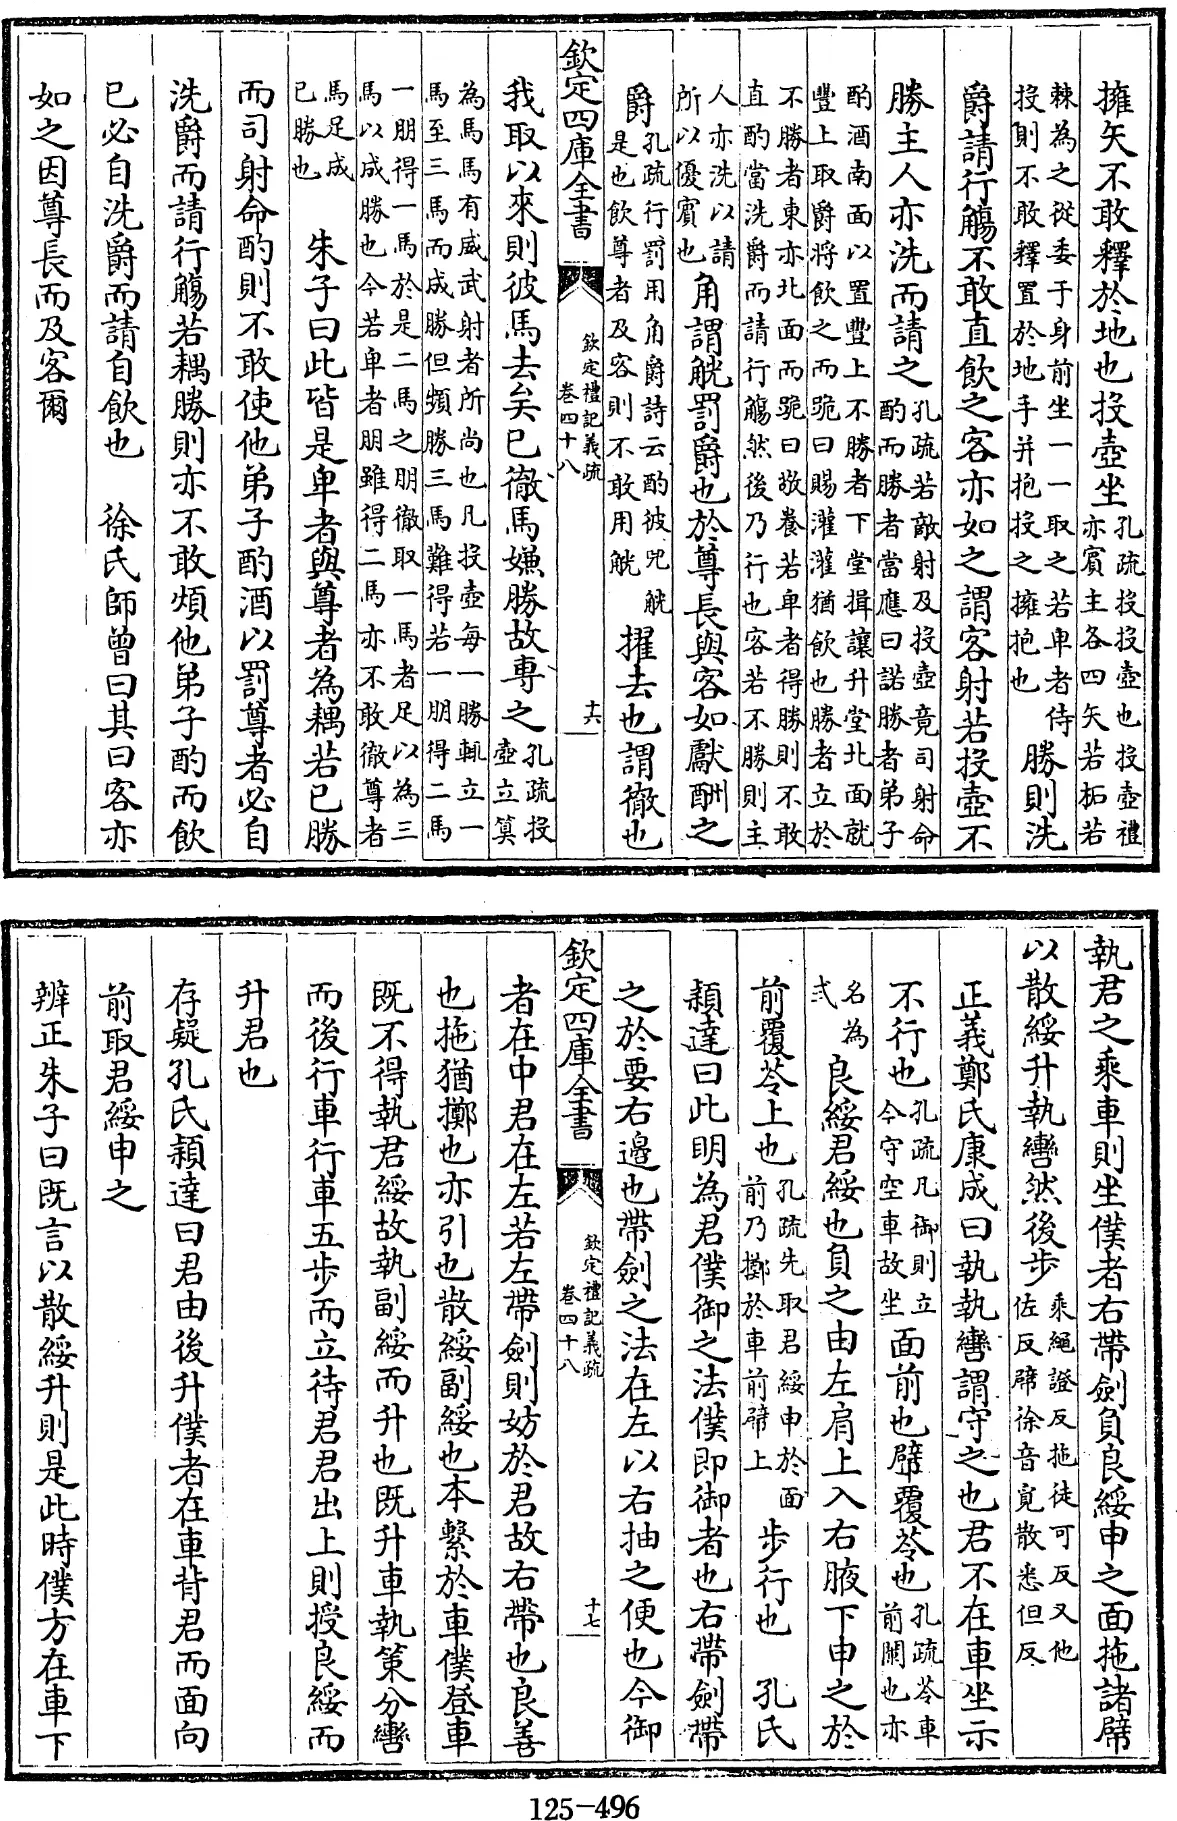 擁矢不敢釋於地也投壺坐孔疏投投壺也投壺禮亦賓主各四矢若柘若
棘為之從委于身前坐一一取之若卑者侍投則不敢釋置於地手并抱投之擁抱也勝則洗
爵請行觴不敢直飲之客亦如之謂客射若投壺不
勝主人亦洗而請之孔疏若敵射及投壺竟司射命酌而勝者當應曰諾勝者弟子
酌酒南面以置豐上不勝者下堂揖讓升堂北面就豐上取爵將飲之而跪曰賜灌灌猶飲也勝者立於
不勝者東亦北面而跪曰敬養若卑者得勝則不敢直酌當洗爵而請行觴然後乃行也客若不勝則主
人亦洗以請所以優賓也角謂觥罰爵也於尊長與客如獻酬之
爵孔疏行罰用角爵詩云酌彼兕觥是也飲尊者及客則不敢用觥擢去也謂徹也
欽定四庫全書 欽定禮記義疏卷四十八 十六
我取以來則彼馬去矣已徹馬嫌勝故專之孔疏投壺立算
為馬馬有威武射者所尚也凡投壺每一勝輒立一馬至三馬而成勝但頻勝三馬難得若一朋得二馬
一朋得一馬於是二馬之朋徹取一馬者足以為三馬以成勝也今若卑者朋雖得二馬亦不敢徹尊者
馬足成已勝也 朱子曰此皆是卑者與尊者為耦若已勝
而司射命酌則不敢使他弟子酌酒以罰尊者必自
洗爵而請行觴若耦勝則亦不敢煩他弟子酌而飲
已必自洗爵而請自飲也 徐氏師曾曰其曰客亦
如之因尊長而及客爾
執君之乘車則坐僕者右帶劍負良綏申之面拖諸幦
以散綏升執轡然後步乘繩證反拖徒可反又他佐反幦徐音覓散悉但反
正義鄭氏康成曰執執轡謂守之也君不在車坐示
不行也孔疏凡御則立今守空車故坐面前也幦覆苓也孔疏苓車前闌也亦
名為式良綏君綏也負之由左肩上入右腋下申之於
前覆苓上也孔疏先取君綏申於面前乃擲於車前幦上步行也 孔氏
穎達曰此明為君僕御之法僕即御者也右帶劍帶
之於要右邉也帶劍之法在左以右抽之便也今御
欽定四庫全書 欽定禮記義疏卷四十八 十七
者在中君在左若左帶劍則妨於君故右帶也良善
也拖猶擲也亦引也散綏副綏也本繫於車僕登車
既不得執君綏故執副綏而升也既升車執策分轡
而後行車行車五步而立待君君出上則授良綏而
升君也
存疑孔氏穎達曰君由後升僕者在車背君而面向
前取君綏申之
辨正朱子曰既言以散綏升則是此時僕方在車下
125-496